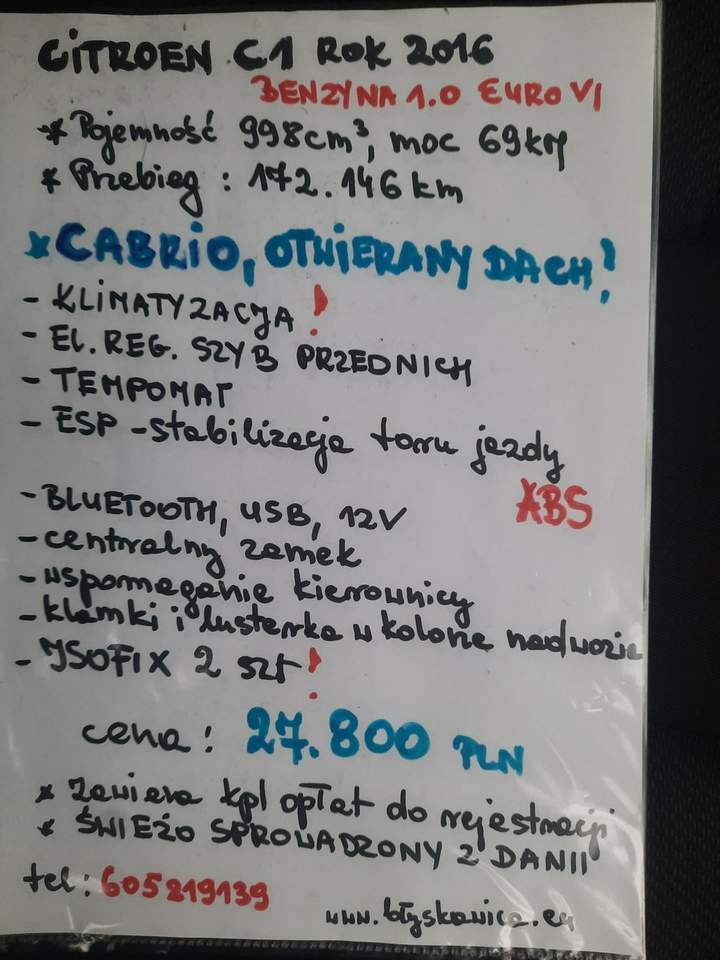 CITROEN C1 ROK 2016
BENZYNA 1.0 EURO VI
* Pojemność 998cm³, moc 69kM
* Przebieg : 172.146 km
* CABRIO, OTWIERANY DACH!
- KLIMATYZACJA !
- EL. REG. SZYB PRZEDNICH
- TEMPOMAT
- ESP - stabilizacja toru jazdy
ABS
- BLUETOOTH, USB, 12V
- centralny zamek
- wspomaganie kierownicy
- klamki i lusterka w kolorze nadwozia
- ISOFIX 2 szt !
cena : 27.800 PLN
* Zawiera kpl opłat do rejestracji
* ŚWIEŻO SPROWADZONY Z DANII
tel : 605219139
www.błyskawica.eu